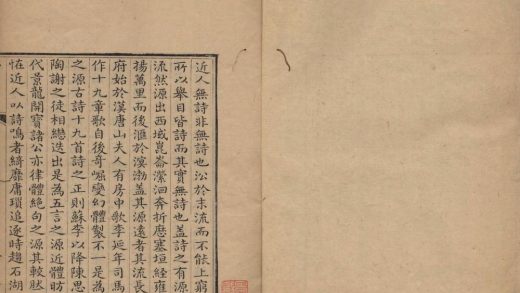 近人無詩非無詩也汩於末流而不能上窮
所以舉目皆詩而其實無詩也蓋詩之有源
流然源出西域崑崙瀠洄奔折歷塞垣經雍
揚萬里而後滙於溟渤蓋其源遠者其流長
府始於漢唐山夫人有房中歌李延年司馬
作十九章歌自後奇崛變幻體製不一是為
之源古詩十九首詩之正則蘇李以降陳思
陶謝之徒相繼迭出是為五言之源近體昉
代景龍開寶諸公亦律體絕句之源其較然
恠近人以詩鳴者綺靡庸瑣追逐時趨石湖